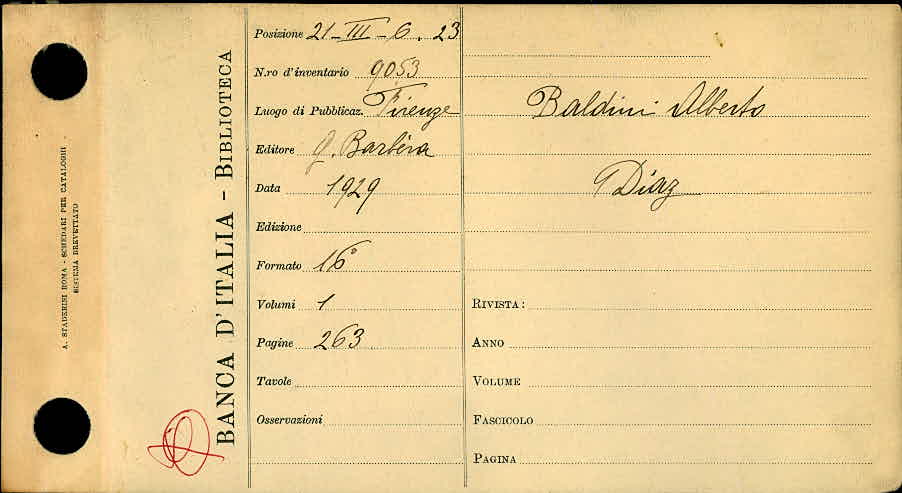 A. STADERINI ROMA - SCHEDARI PER CATALOGHI
SISTEMA BREVETTATO
BANCA D'ITALIA - BIBLIOTECA
Posizione 21-III-6.23
N.ro d'inventario 9053
Luogo di Pubblicaz. Firenze
Editore G. Barbèra
Data 1929
Edizione
Formato 16°
Volumi 1
Pagine 263
Tavole
Osservazioni
Baldini Alberto
Diaz
RIVISTA:
ANNO
VOLUME
FASCICOLO
PAGINA